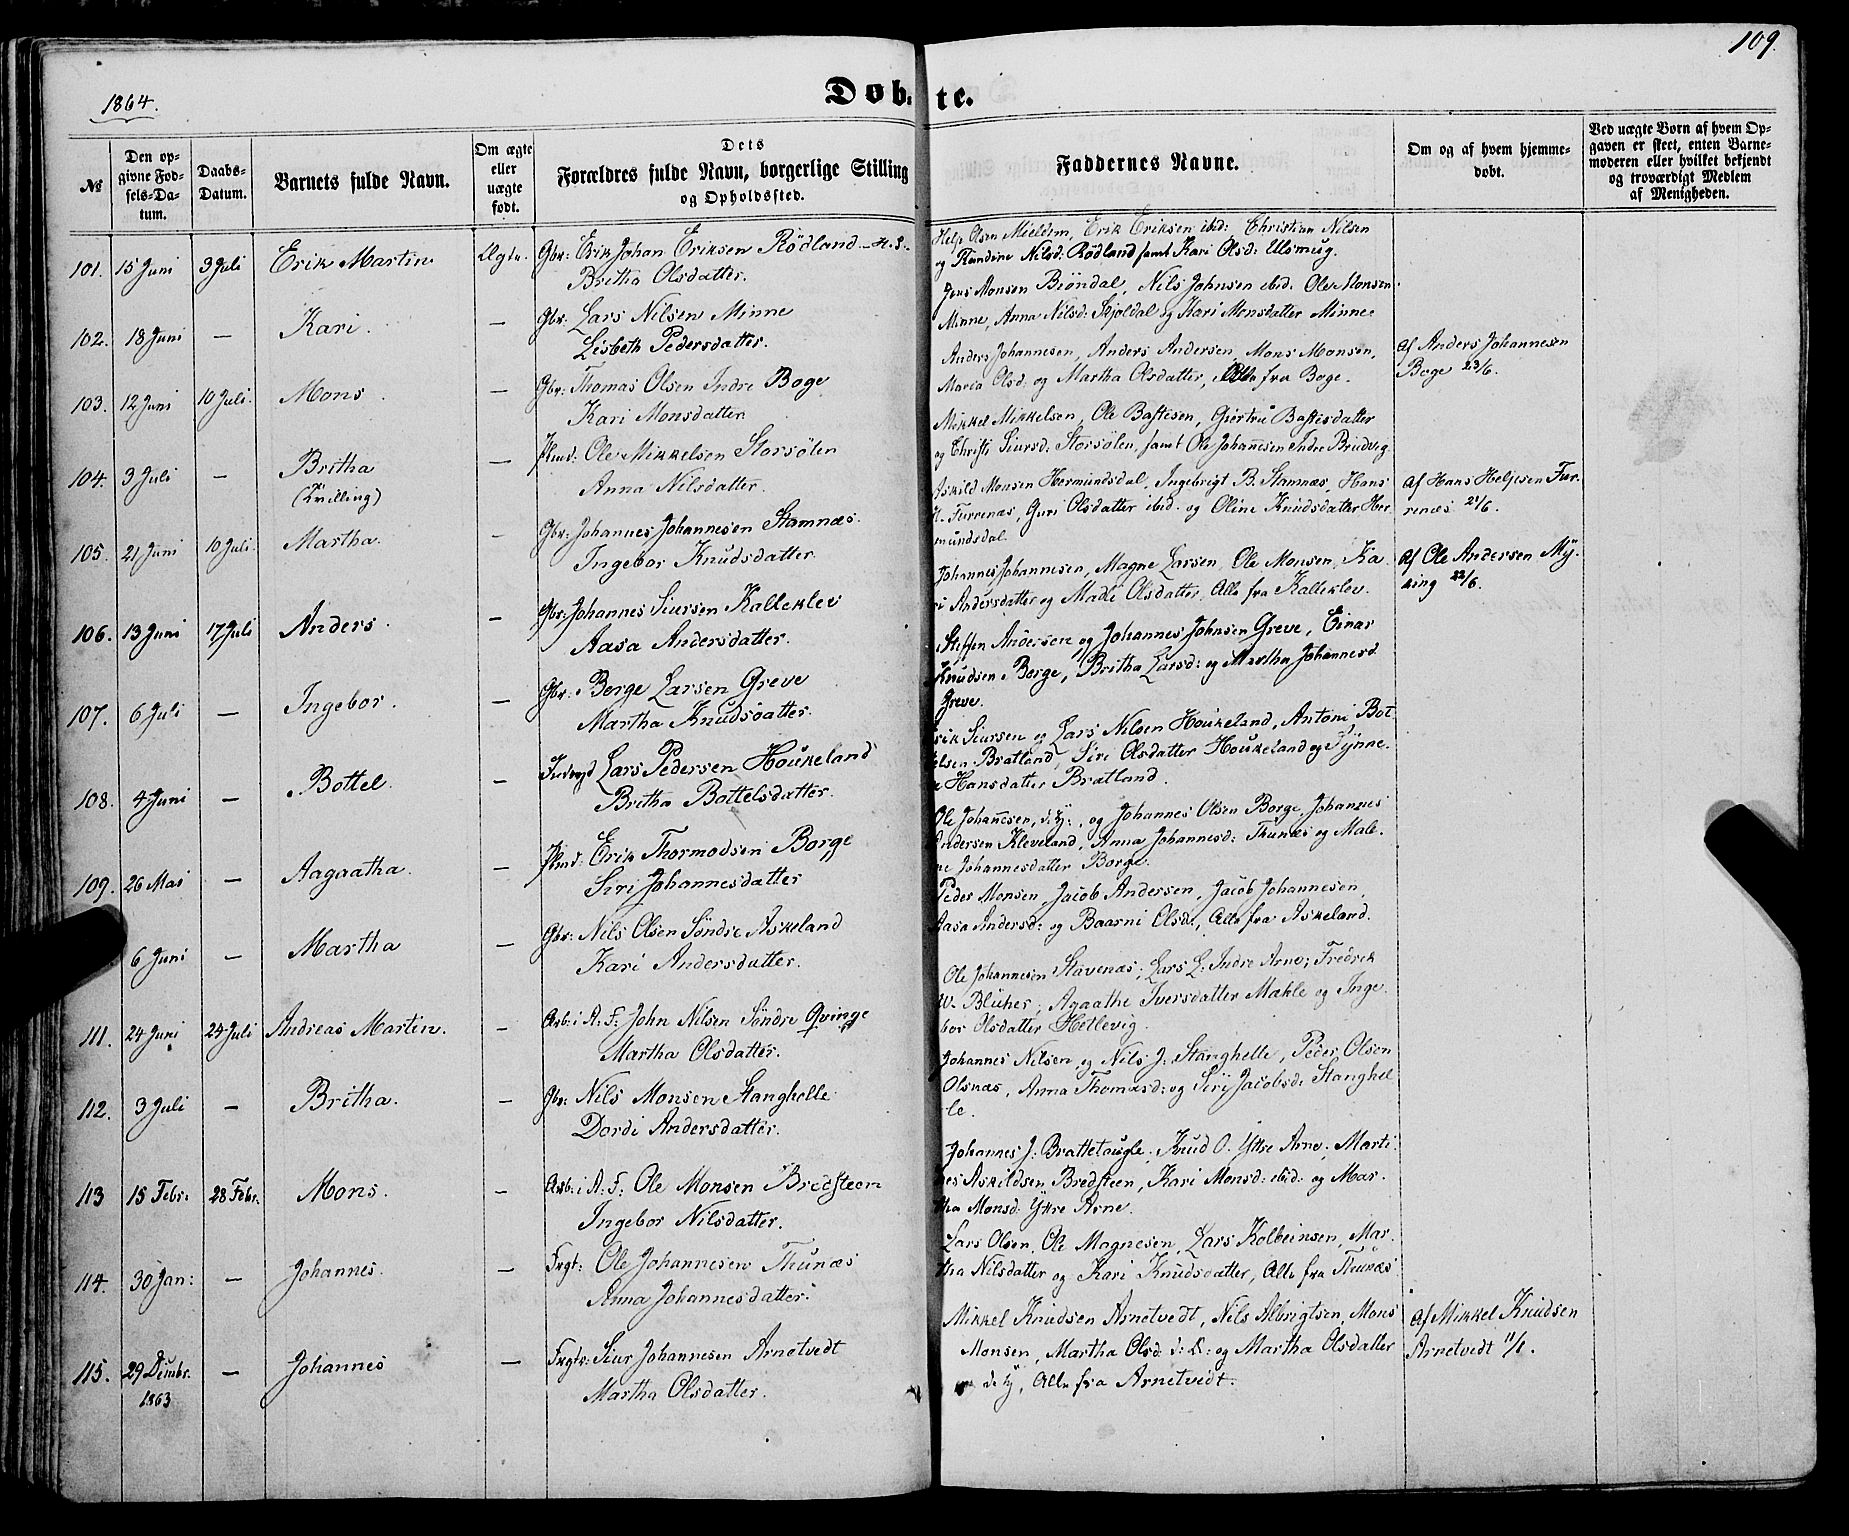 109.
1864.
Døbte.
No
Den opgivne Fødsels-Datum.
Daabs-Datum.
Barnets fulde Navn.
Om ægte eller uægte født.
Dets Forældres fulde Navn, borgerlige Stilling og Opholdssted.
Faddernes Navne.
Om og af hvem hjemmedøbt.
Ved uægte Børn af hvem Opgaven er skeet, enten Barnemoderen eller hvilket bekjendt og troværdigt Medlem af Menigheden.
101. 15 Juni 3 Juli Erik Martin Ægte. Gbr: Erik Johan Eriksen Rödland
Britha Olsdatter.
Helje Olsen Mieldem, Erik Eriksen ibid: Christian Nilsen
og Randine Nilsd: Rödland samt Kari Olsd: Ulsmug.
102. 18 Juni — Kari. — Gbr. Lars Nilsen Minne
Lisbeth Pedersdatter.
Jens Monsen Biöndal, Nils Johnsen ibid. Ole Monsen
Minne, Anna Nilsd: Skjoldal og Kari Monsdatter Minne.
103. 12 Juni 10 Juli. Mons. — Gbr: Thomas Olsen Indre Boge
Kari Monsdatter
Anders Johannesen, Anders Andersen, Mons Monsen,
Maria Olsd: og Martha Olsdatter, Alle fra Boge.
Af Anders Johannesen
Boge 23/6.
104. 3 Juli — Britha
(Tvilling)
— Ole Mikkelsen Storsölen
Anna Nilsdatter.
Mikkel Mikkelsen, Ole Bastesen, Giertru Bastesdatter
og Christi Siursd: Storsölen, samt Ole Johannesen Indre Brudvig
105. 21 Juni 10 Juli. Martha. — Gbr: Johannes Johannesen Stamnæs.
Ingebor Knudsdatter.
Askild Monsen Hermundsdal, Ingebrigt B. Stamnæs, Hans
H. Furrenæs, Guri Olsdatter ibid. og Oline Knudsdatter Her
mundsdal.
Af Hans Heljesen Fur-
renæs 21/6.
106. 13 Juni 17 Juli Anders. — Gbr: Johannes Siursen Kalleklev
Aasa Andersdatter.
Johannes Johannesen, Magne Larsen, Ole Monsen, Ka
ri Andersdatter og Madli Olsdatter, Alle fra Kalleklev.
Af Ole Andersen My-
king 22/6.
107. 6 Juli — Ingebor. — Gbr: Børge Larsen Greve
Martha Knudsdatter.
Steffen Andersen og Johannes Johnsen Greve, Einar
Knudsen Borge, Britha Larsd: og Martha Johannesd.
Greve.
108. 4 Juni — Bottel. — Lars Pedersen Houkeland
Britha Bottelsdatter.
Erik Siursen og Lars Nilsen Houkeland, Antoni Bot
telsen Bratland, Siri Olsdatter Houkeland og Synne-
Hansdatter Bratland.
109. 26 Mai — Aagaatha. — Erik Thormodsen Borge
Siri Johannesdatter
Ole Johannesen, d: y:, og Johannes Olsen Borge, Johannes
Andersen Kleveland, Anna Johannesd: Thunæs og Male-
ne Johannesdatter Borge.
6 Juni — Martha — Gbr: Nils Olsen Söndre Askeland
Kari Andersdatter.
Peder Monsen, Jacob Andersen, Jacob Johannesen,
Aasa Andersd: og Baarni Olsd:, Alle fra Askeland.
111. 24 Juni 24 Juli Andreas Martin. — Arb: i A: F: John Nilsen Söndre Qvinge
Martha Olsdatter.
Ole Johannesen Stavenæs, Lars L. Indre Arne, Fredrek
W. Blücher, Agaathe Iversdatter Mæhle og Inge-
bor Olsdatter Hetlevig.
112. 3 Juli — Britha. — Gbr: Nils Monsen Stanghelle
Dordi Andersdatter.
Johannes Nilsen og Nils J: Stanghelle, Peder Olsen
Olsnæs, Anna Thomasd: og Siri Jacobsd: Stanghel
le.
113 15 Febr: 28 Febr. Mons. — Arb: i A: F: Ole Monsen Bredsteen
Ingebor Nilsdatter.
Johannes J. Brattetaugle, Knud O. Yttre Arne, Marti-
nes Askildsen Bredsteen, Kari Monsd: ibid: og Mar-
tha Monsd: Yttre Arne.
114. 30 Jan: — Johannes. — Frgt: Ole Johannesen Teunæs
Anna Johannesdatter.
Lars Olsen, Ole Magnesen, Lars Kolbeinsen, Mar-
tha Nilsdatter og Kari Knudsdatter, Alle fra Teunæs
115. 29 Dcembr.
1863
— Johannes — Frgtr: Siur Johannesen Arnetvedt
Martha Olsdatter.
Mikkel Knudsen Arnetvedt, Nils Albrigtsen, Mons
Monsen, Martha Olsd: d: E: og Martha Olsdatter
d: y, Alle fra Arnetvedt.
Af Mikkel Knudsen
Arnetvedt 11/1.